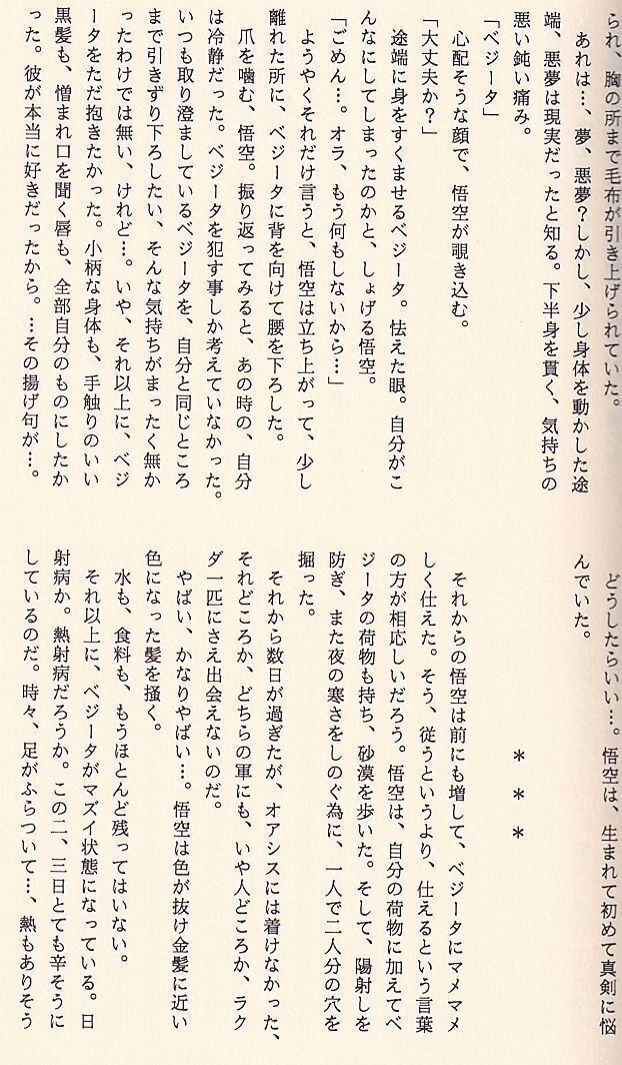 られ、胸の所まで毛布が引き上げられていた。
あれは…、夢、悪夢？しかし、少し身体を動かした途
端、悪夢は現実だったと知る。下半身を貫く、気持ちの
悪い鈍い痛み。
「ベジータ」
心配そうな顔で、悟空が覗き込む。
「大丈夫か？」
途端に身をすくませるベジータ。怯えた眼。自分がこ
んなにしてしまったのかと、しょげる悟空。
「ごめん…。オラ、もう何もしないから…」
ようやくそれだけ言うと、悟空は立ち上がって、少し
離れた所に、ベジータに背を向けて腰を下ろした。
爪を噛む、悟空。振り返ってみると、あの時の、自分
は冷静だった。ベジータを犯す事しか考えていなかった。
いつも取り澄ましているベジータを、自分と同じところ
まで引きずり下ろしたい、そんな気持ちがまったく無か
ったわけでは無い、けれど…。いや、それ以上に、ベジ
ータをただ抱きたかった。小柄な身体も、手触りのいい
黒髪も、憎まれ口を聞く唇も、全部自分のものにしたか
った。彼が本当に好きだったから。…その揚げ句が…。
どうしたらいい…。悟空は、生まれて初めて真剣に悩
んでいた。
＊＊＊
それからの悟空は前にも増して、ベジータにマメマメ
しく仕えた。そう、従うというより、仕えるという言葉
の方が相応しいだろう。悟空は、自分の荷物に加えてベ
ジータの荷物も持ち、砂漠を歩いた。そして、陽射しを
防ぎ、また夜の寒さをしのぐ為に、一人で二人分の穴を
掘った。
それから数日が過ぎたが、オアシスには着けなかった、
それどころか、どちらの軍にも、いや人どころか、ラク
ダ一匹にさえ出会えないのだ。
やばい、かなりやばい…。悟空は色が抜け金髪に近い
色になった髪を掻く。
水も、食料も、もうほとんど残ってはいない。
それ以上に、ベジータがマズイ状態になっている。日
射病か。熱射病だろうか。この二、三日とても辛そうに
しているのだ。時々、足がふらついて…、熱もありそう